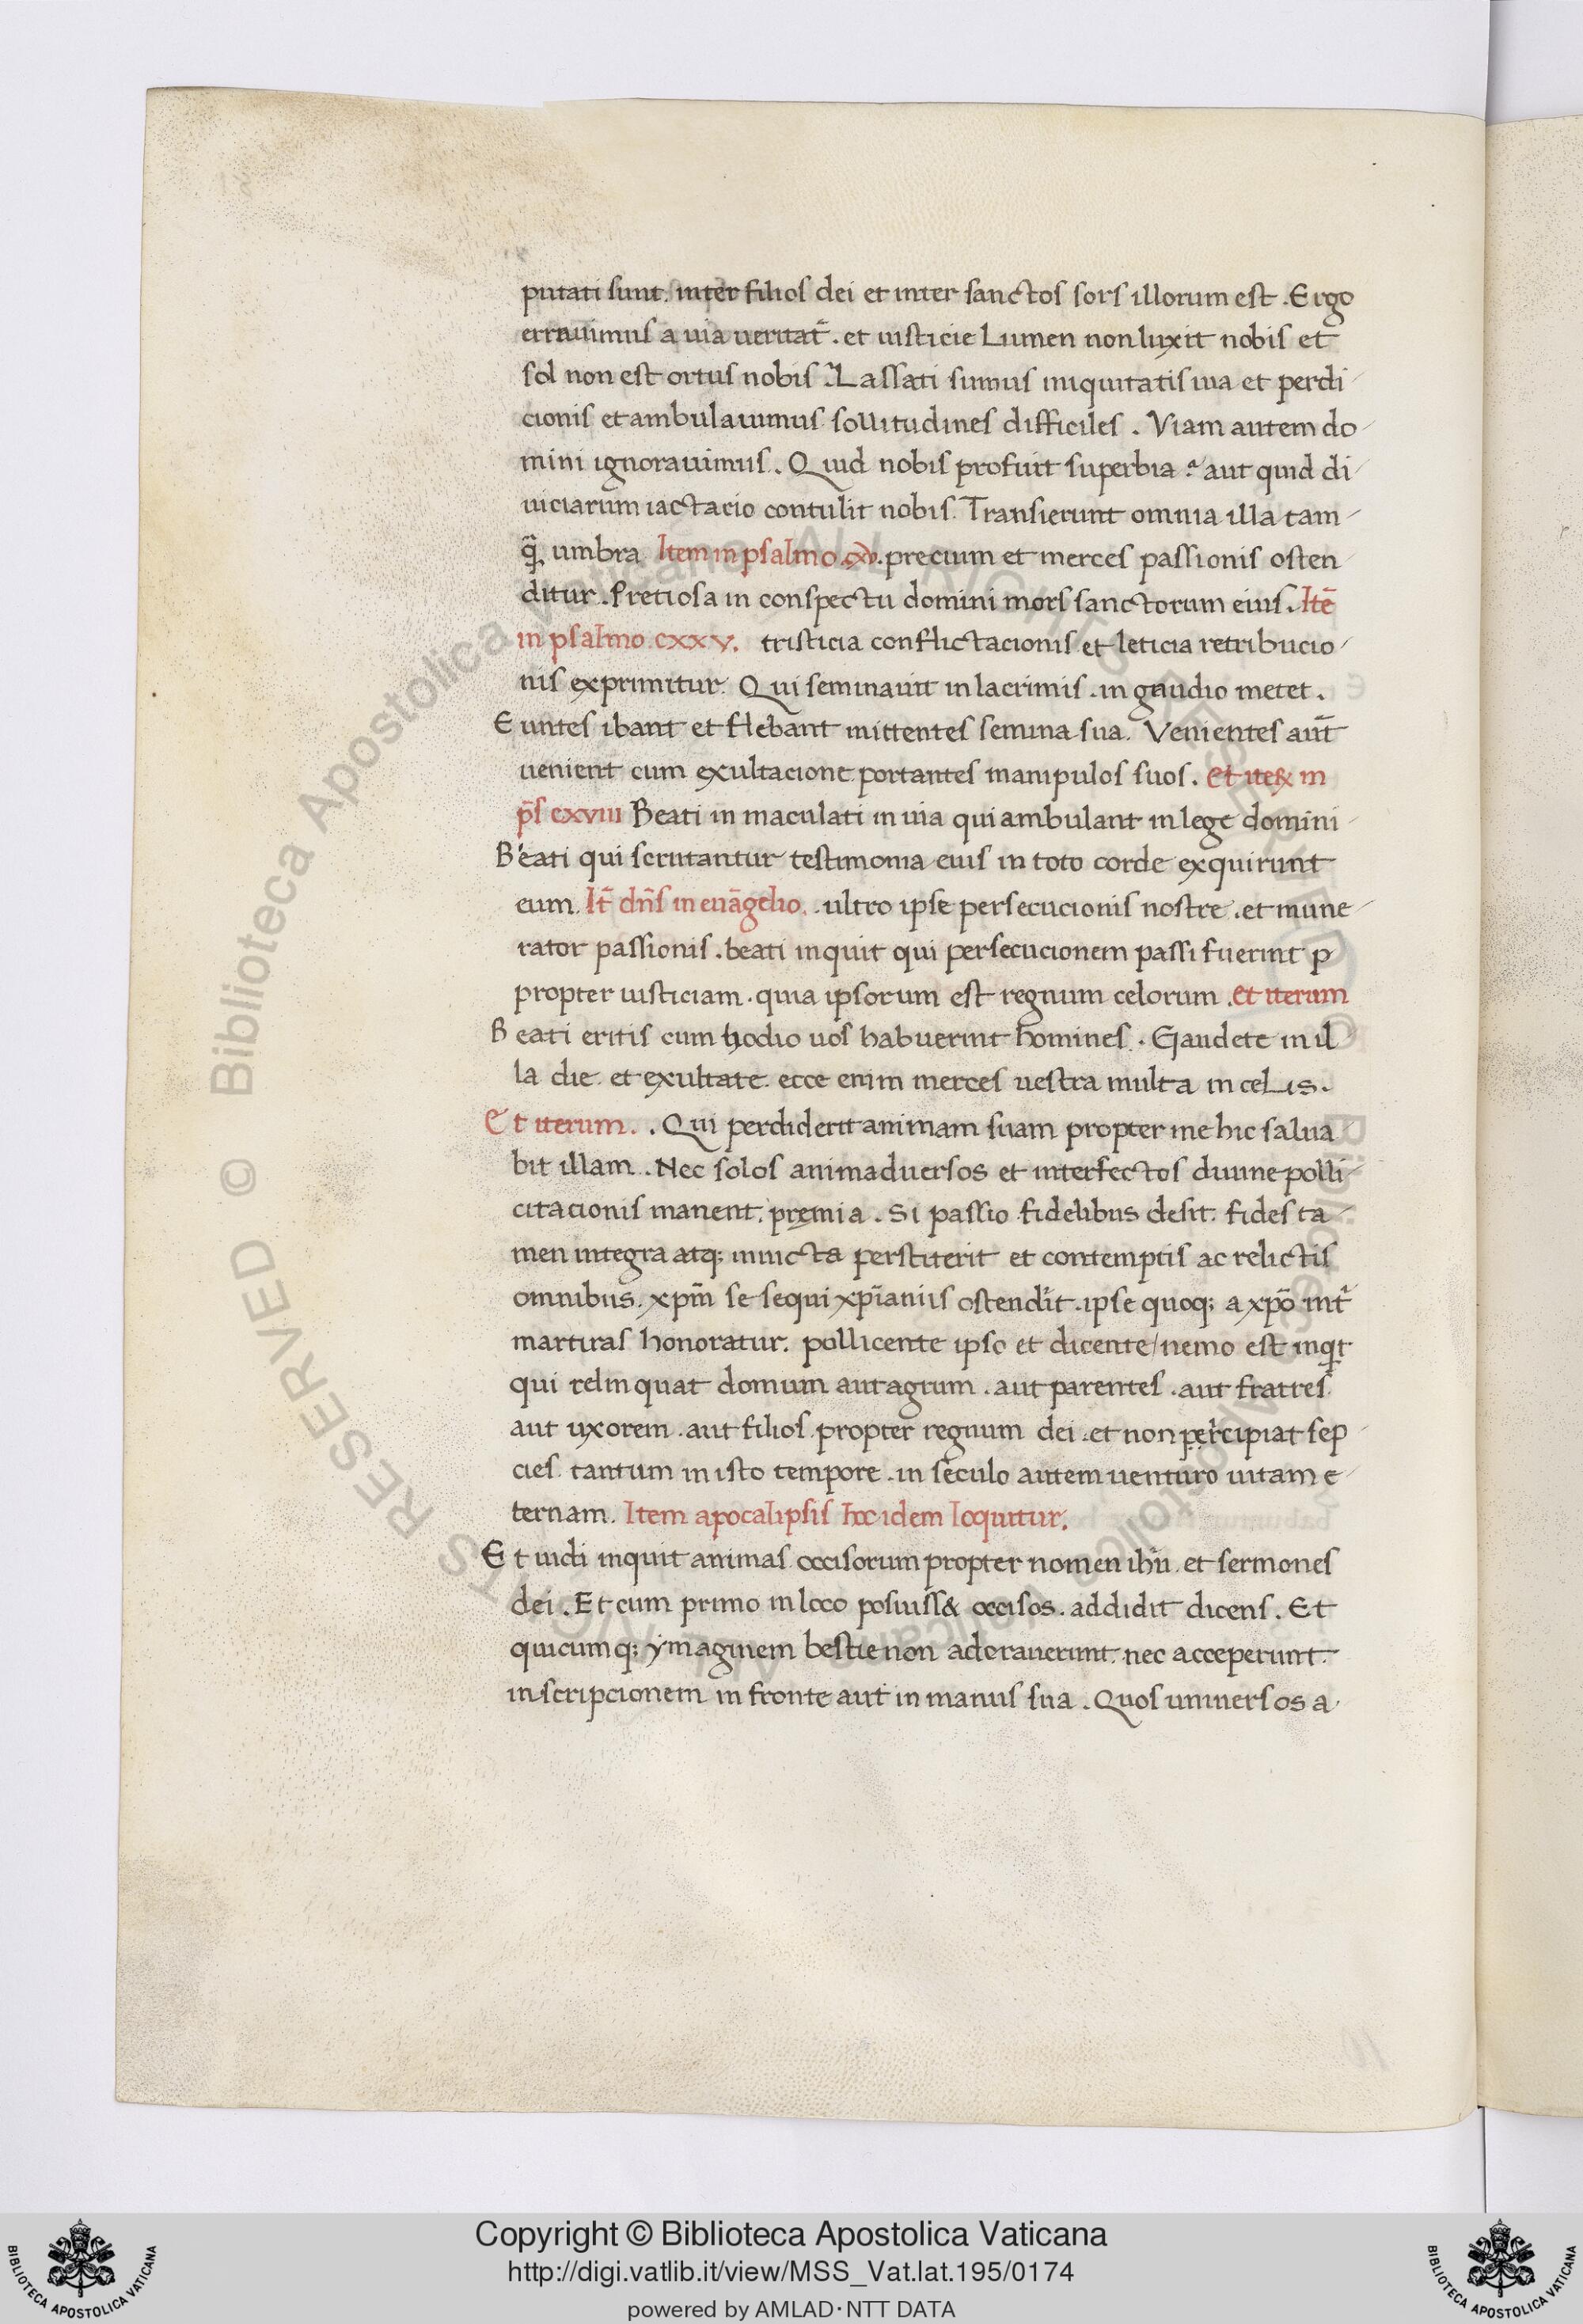 putati sunt. inter filios dei et inter sanctos sors illorum est. Ergo
erravimus a uia ueritat̄. et iusticie Lumen non luxit nobis et
sol non est ortus nobis. Lassati sumus iniquitatis uia et perdi
cionis et ambulauimus sollitudines difficiles. Viam autem do
mini ignorauimus. Quid nobis profuit superbia? aut quid di
uiciarum iactacio contulit nobis. Transierunt omnia illa tam
q̃ umbra Item in psalmo cxv. precium et merces passionis osten
ditur. Pretiosa in conspectu domini mors sanctorum eius. Itē
in psalmo cxxv. tristicia conflictacionis et leticia retribucio
nis exprimitur. Qui seminauit in lacrimis. in gaudio metet.
Euntes ibant et flebant mittentes semina sua. Venientes aūt
uenient cum exultacione portantes manipulos suos. Et iteꝝ in
p̄s cxviii Beati in maculati in uia qui ambulant in lege domini
Beati qui scrutantur testimonia eius in toto corde exquirunt
eum. It̄ dn̄s in euāgelio. ultro ipse persecucionis nostre. et mune
rator passionis. beati inquit qui persecucionem passi fuerint p
propter iusticiam. quia ipsorum est regnum celorum. et iterum
Beati eritis cum hodio uos habuerint homines. Gaudete in il
la die. et exultate. ecce enim merces uestra multa in celis.
Et iterum. Qui perdiderit animam suam propter me hic salua
bit illam. Nec solos animaduersos et interfectos diuine polli
citacionis manent. pręmia. Si passio fidelibus desit. fides ta
men integra atq; inuicta perstiterit et contemptis ac relictis
omnibus. xpm̄ se sequi xpīanus ostendit. ipse quoq; a xpō int̄
martiras honoratur. pollicente ipso et dicente/ nemo est inqt
qui relinquat domum aut agrum. aut parentes. aut fratres
aut uxorem. aut filios. propter regnum dei. et non percipiat sep
cies tantum in isto tempore. in seculo autem uenturo uitam e
ternam. Item apocalipsis hoc idem loquitur.
Et uidi inquit animas occisorum propter nomen ihū. et sermones
dei. Et cum primo in loco posuiss& occisos. addidit dicens. Et
quicumq; ymaginem bestie non adorauerunt. nec acceperunt
inscripcionem in fronte aut in manus sua. Quos uniuersos a
© Biblioteca Apostolica Vaticana ALL RIGHTS RESERVED
Copyright © Biblioteca Apostolica Vaticana
http://digi.vatlib.it/view/MSS_Vat.lat.195/0174
powered by AMLAD·NTT DATA
BIBLIOTECA APOSTOLICA VATICANA
BIBLIOTECA APOSTOLICA VATICANA